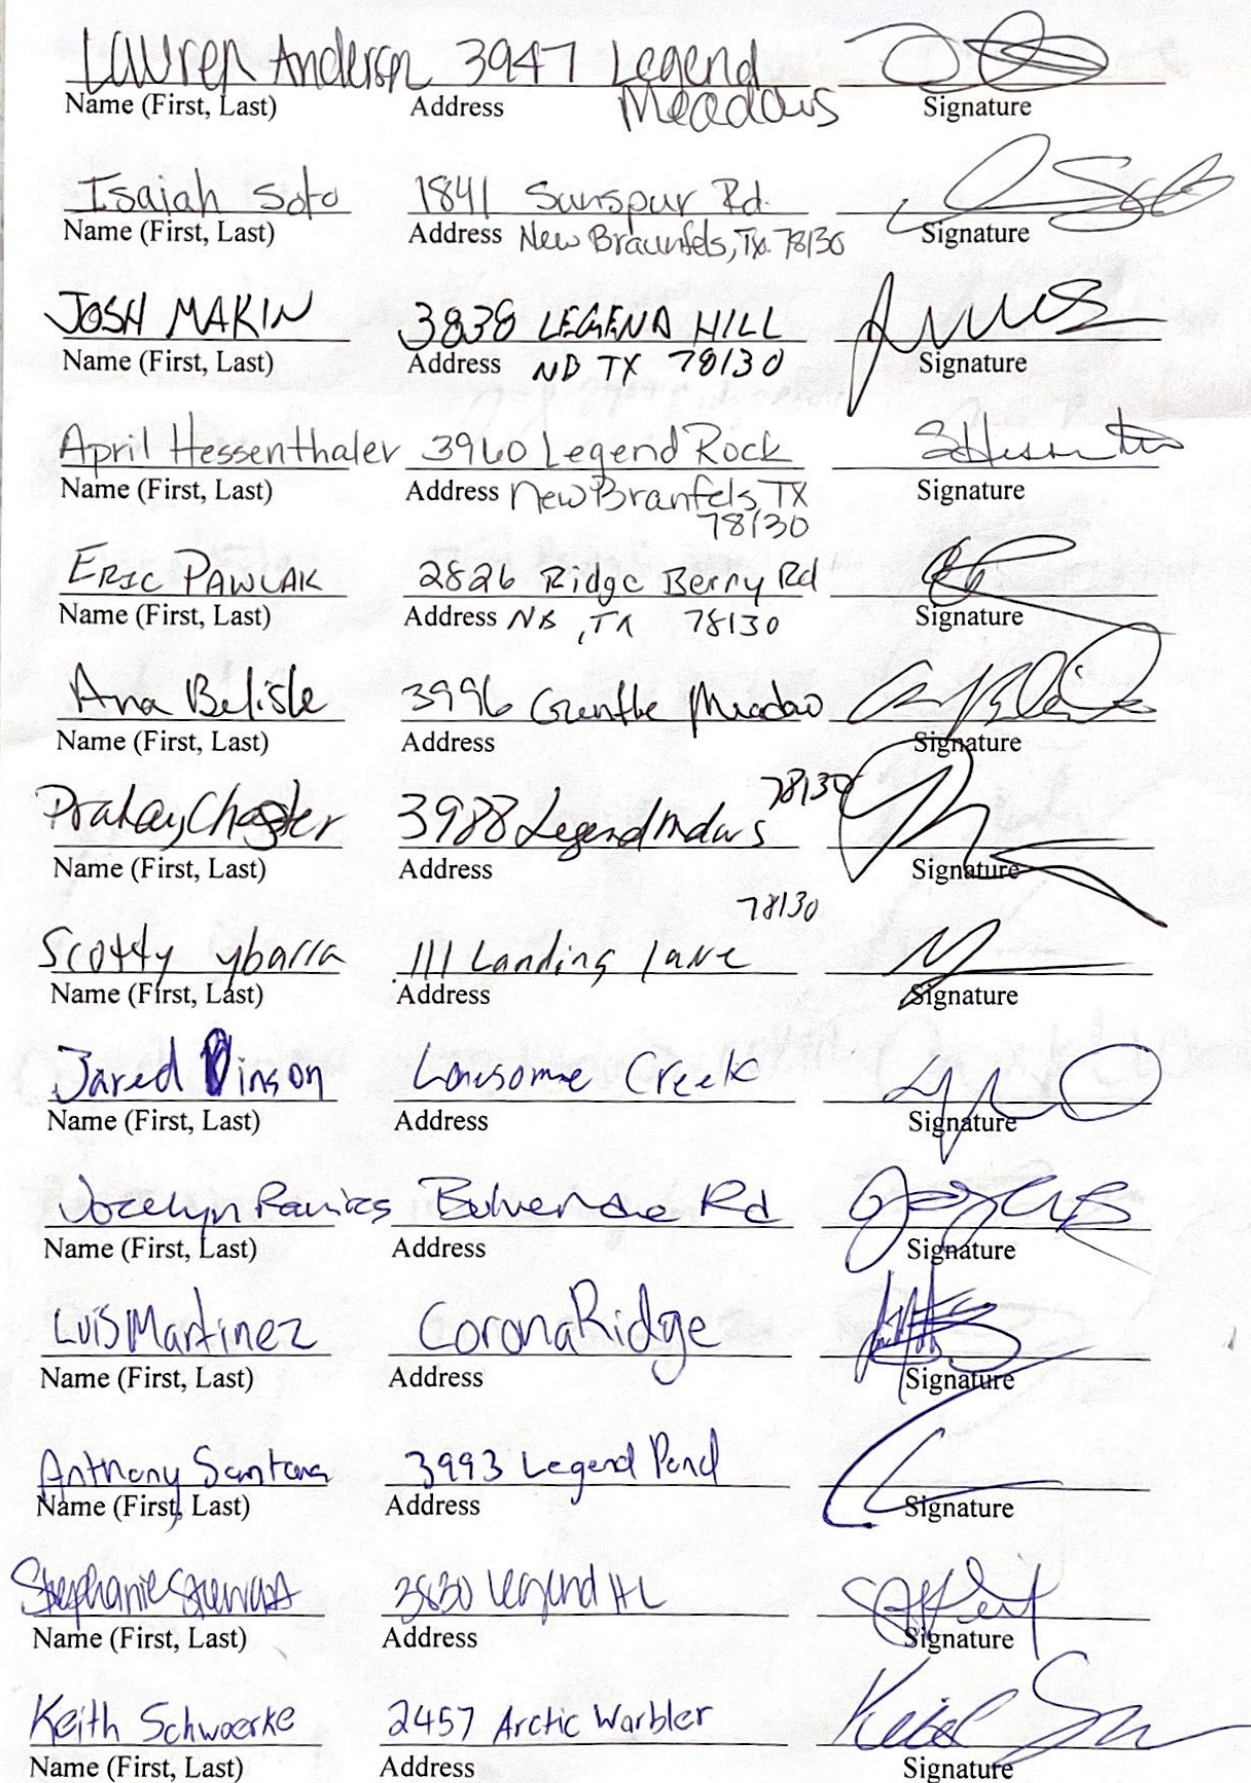 Lauren Anderson 3947 Legend
Name (First, Last) Address Meadows Signature
Isaiah Soto 1841 Sunspur Rd.
Name (First, Last) Address New Braunfels, Tx. 78130 Signature
JOSH MAKIN 3838 LEGEND HILL
Name (First, Last) Address NB TX 78130 Signature
April Hessenthaler 3960 Legend Rock
Name (First, Last) Address New Branfels, TX Signature
78130
ERIC PAWLAK 2826 Ridge Berry Rd
Name (First, Last) Address NB, TX 78130 Signature
Ana Belisle 3996 Meadow
Name (First, Last) Address Signature
78130
3988 Legend
Name (First, Last) Address Signature
78130
Scotty ybarra 111 Landing lane
Name (First, Last) Address Signature
Jared Vinson Lonesome Creek
Name (First, Last) Address Signature
Jocelyn Bulverde Rd
Name (First, Last) Address Signature
Luis Martinez Corona Ridge
Name (First, Last) Address Signature
Anthony Santana 3993 Legend Pond
Name (First, Last) Address Signature
Stephanie Stewart 3830 Legend HL
Name (First, Last) Address Signature
Keith Schwoerke 2457 Arctic Warbler Keith
Name (First, Last) Address Signature